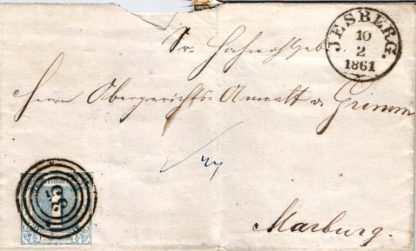 JESBERG.
10
2
1861
Sr. Hochwohlgeb
Herrn Obergerichts-Anwalt v. Grimm
Marburg.
135